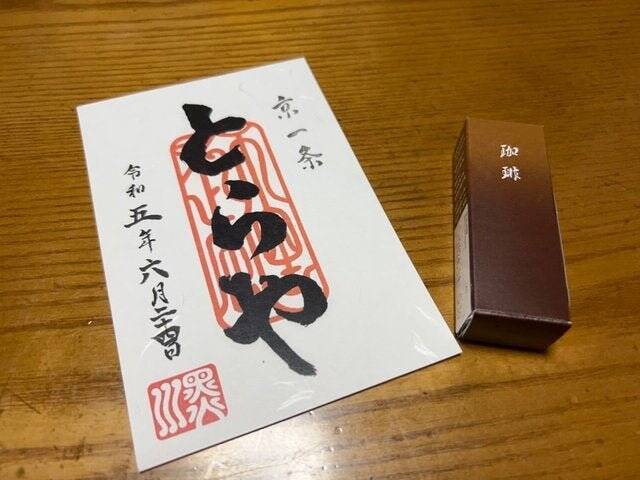 京一条
とらや
令和五年六月二十四日
珈琲